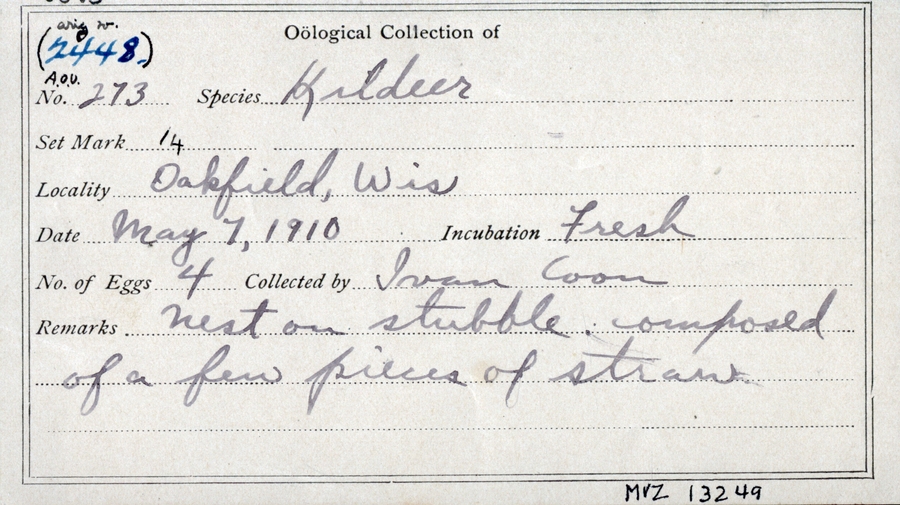 orig n.
(2448.)
Oölogical Collection of
A.O.U.
No. 273 Species Kildeer
Set Mark 1/4
Locality Oakfield, Wis
Date May 7, 1910 Incubation Fresh
No. of Eggs 4 Collected by Ivan Coon
Remarks nest on stubble. composed
of a few pieces of straw.
MVZ 13249